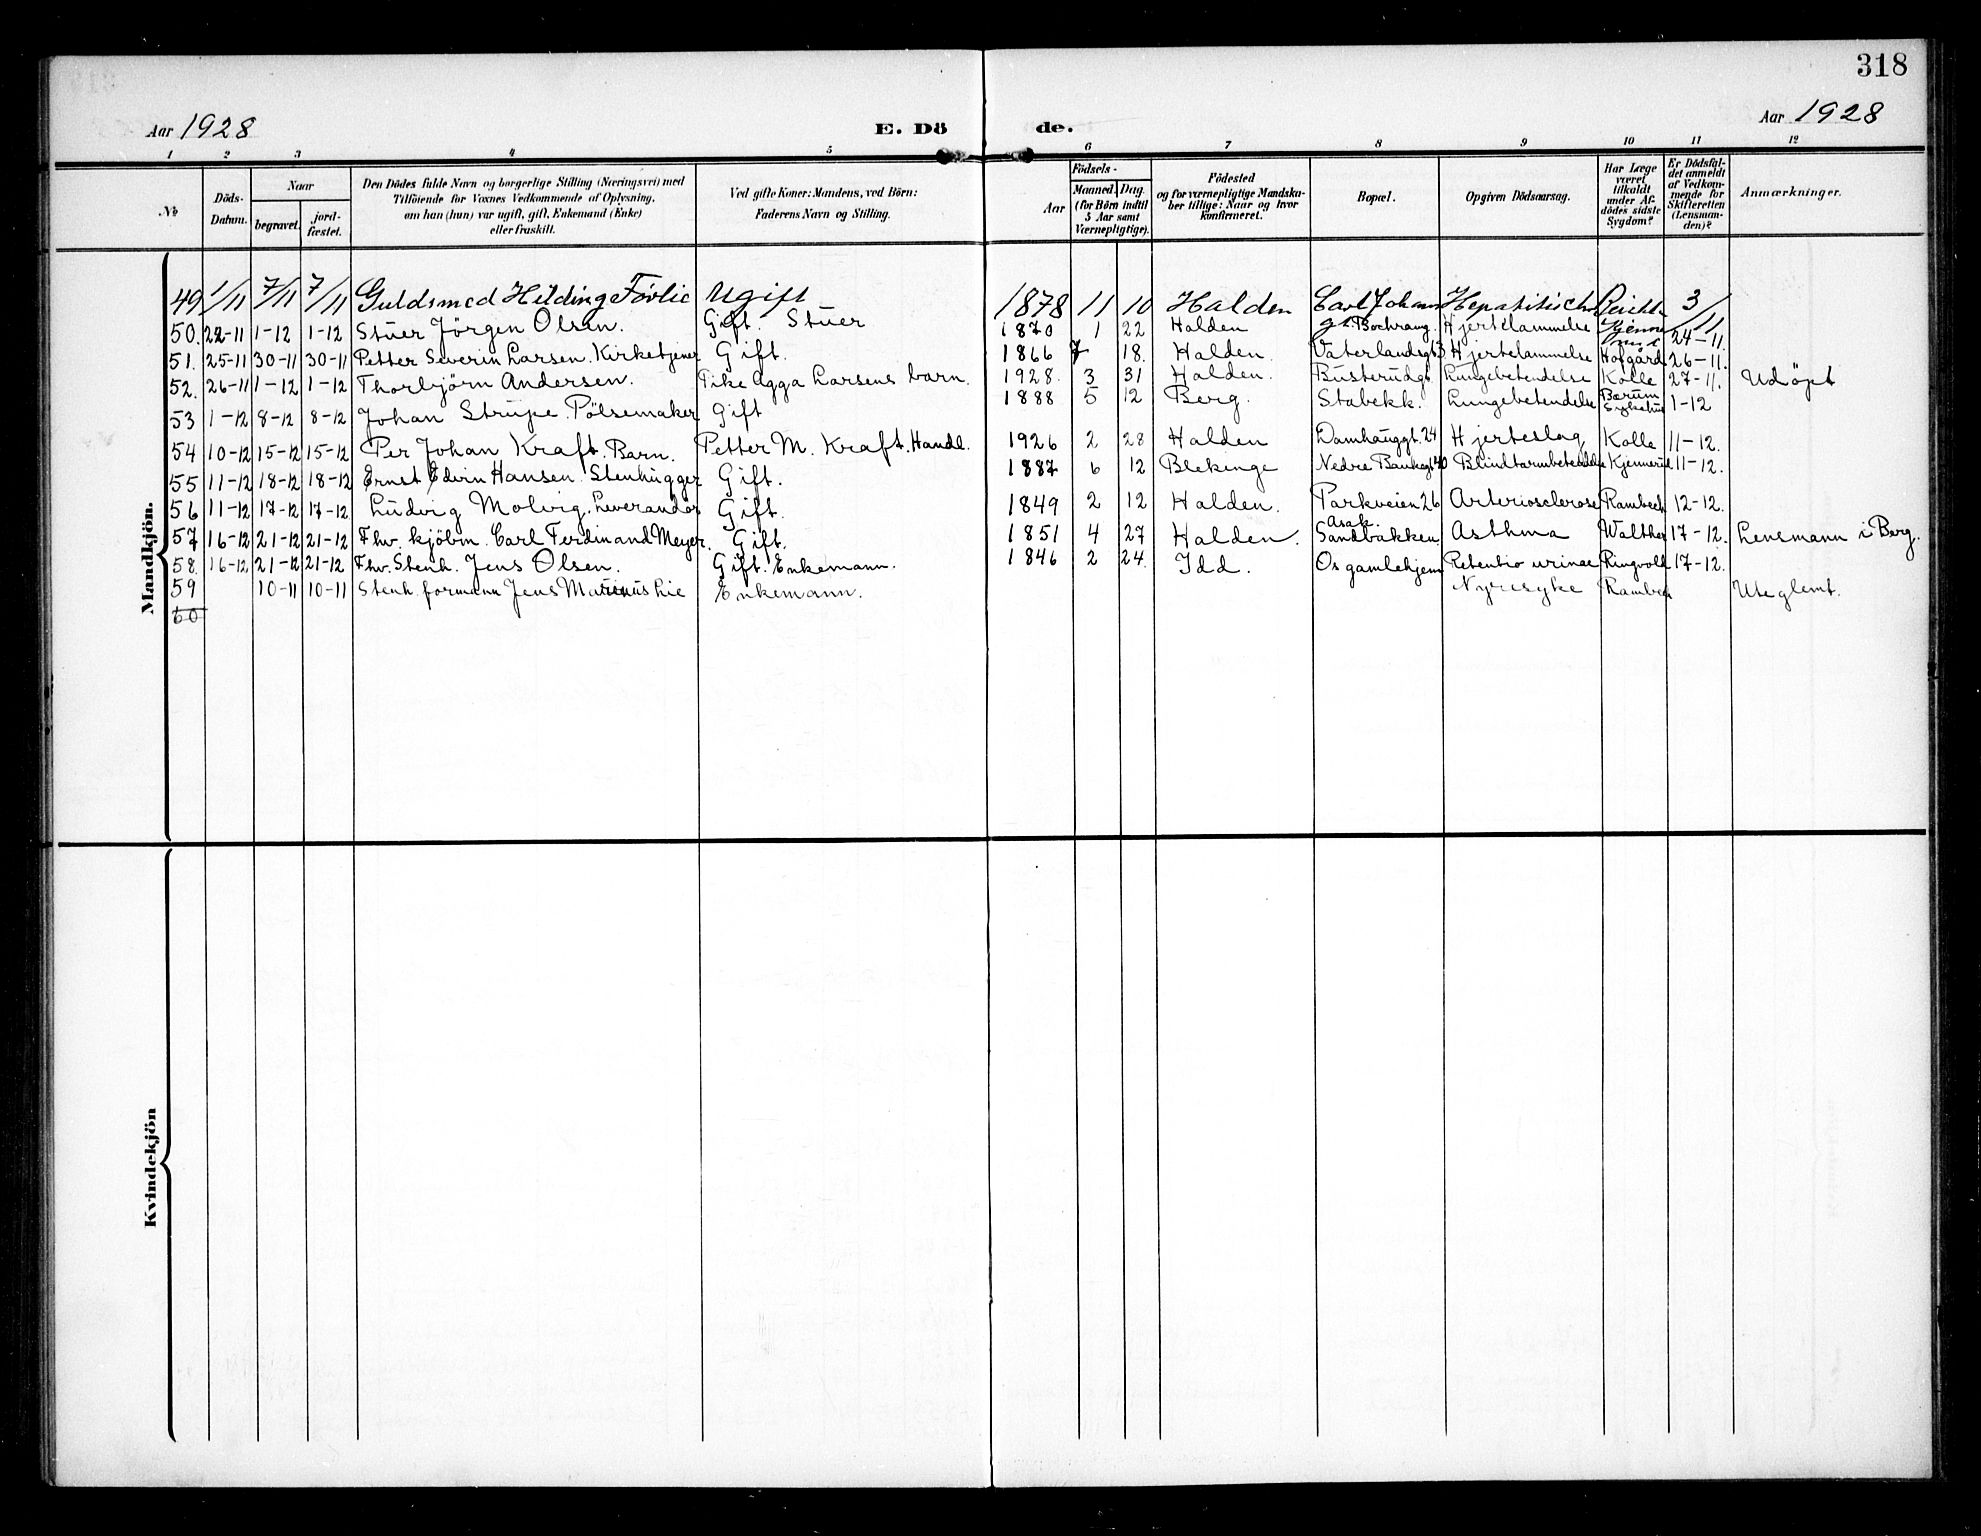 318
Aar 1928
E. Dö
de.
Aar 1928
1 2 3 4 5 6 7 8 9 10 11 12
№
Döds-Datum.
Naar
begravet.
jord-fæstet.
Den Dödes fulde Navn og borgerlige Stilling (Næringsvei) med
Tilföiende for Voxnes Vedkommende af Oplysning,
om han (hun) var ugift, gift, Enkemand (Enke)
eller fraskilt.
Ved gifte Koner: Mandens, ved Börn:
Faderens Navn og Stilling.
Aar
Födsels-
Maaned. Dag.
(for Börn indtil
5 Aar samt
Værnepligtige).
Födested
og for værnepligtige Mandska-
ber tillige: Naar og hvor
konfirmeret.
Bopæl.
Opgiven Dödsaarsag.
Har Læge
været
tilkaldt
under Af-
dödes sidste
Sygdom?
Er Dödsfal-
det anmeldt
af Vedkom-
mende for
Skifteretten
(Lensman-
den)?
Anmærkninger.
Mandkjön.
49 1/11 7/11 7/11 Guldsmed Hilding Förlie Ugift 1878 11 10 Halden Carl Johans 3/11
50. 22-11 1-12 1-12 Stuer Jörgen Olsen. Gift. Stuer 1870 1 22 Halden gt. Hjertelammelse 24-11.
51. 25-11 30-11 30-11 Petter Severin Larsen. Kirketjener Gift. 1866 7 18. Halden. Vaterlandsgt 3 Hjertelammelse Hofgård 26-11.
52. 26-11 1-12 1-12 Thorbjörn Andersen. Pike Agga Larsens barn. 1928. 3 31 Halden. Busterudgt Lungebetendelse Kolle 27-11. Udöpt
53 1-12 8-12 8-12 Johan Strupe. Pölsemaker Gift 1888 5 12 Berg. Stabekk. Lungebetendelse Bærum Sykehus 1-12
54 10-12 15-12 15-12 Per Johan Kraft. Barn. Petter M. Kraft. Handl. 1926 2 28 Halden Damhauggt. 24 Hjerteslag Kolle 11-12.
55 11-12 18-12 18-12 Ernst Edvin Hansen. Stenhugger Gift. 1887 6 12 Blekinge Nedre Bankegt 40 Blindtarmbetendelse Kjennerud 11-12.
56 11-12 17-12 17-12 Ludvig Molvig. Leverandör Gift. 1849 2 12 Halden. Parkveien 26 Arteriosclerose Rambech 12-12.
57 16-12 21-12 21-12 Fhv. kjöbm. Carl Ferdinand Meyer. Gift. 1851 4 27 Halden. Asak. Sandbakken Asthma Walther 17-12. Lensmann i Berg.
58. 16-12 21-12 21-12 Fhv. Stenh. Jens Olsen. Gift. Enkemann. 1846 2 24. Idd. Os gamlehjem Retentio urinae Ringvold 17-12.
59 10-11 10-11 Stenh. formann Jens Marinius Lie Enkemann. Nyresyke Rambech Uteglemt.
60
Kvindekjön